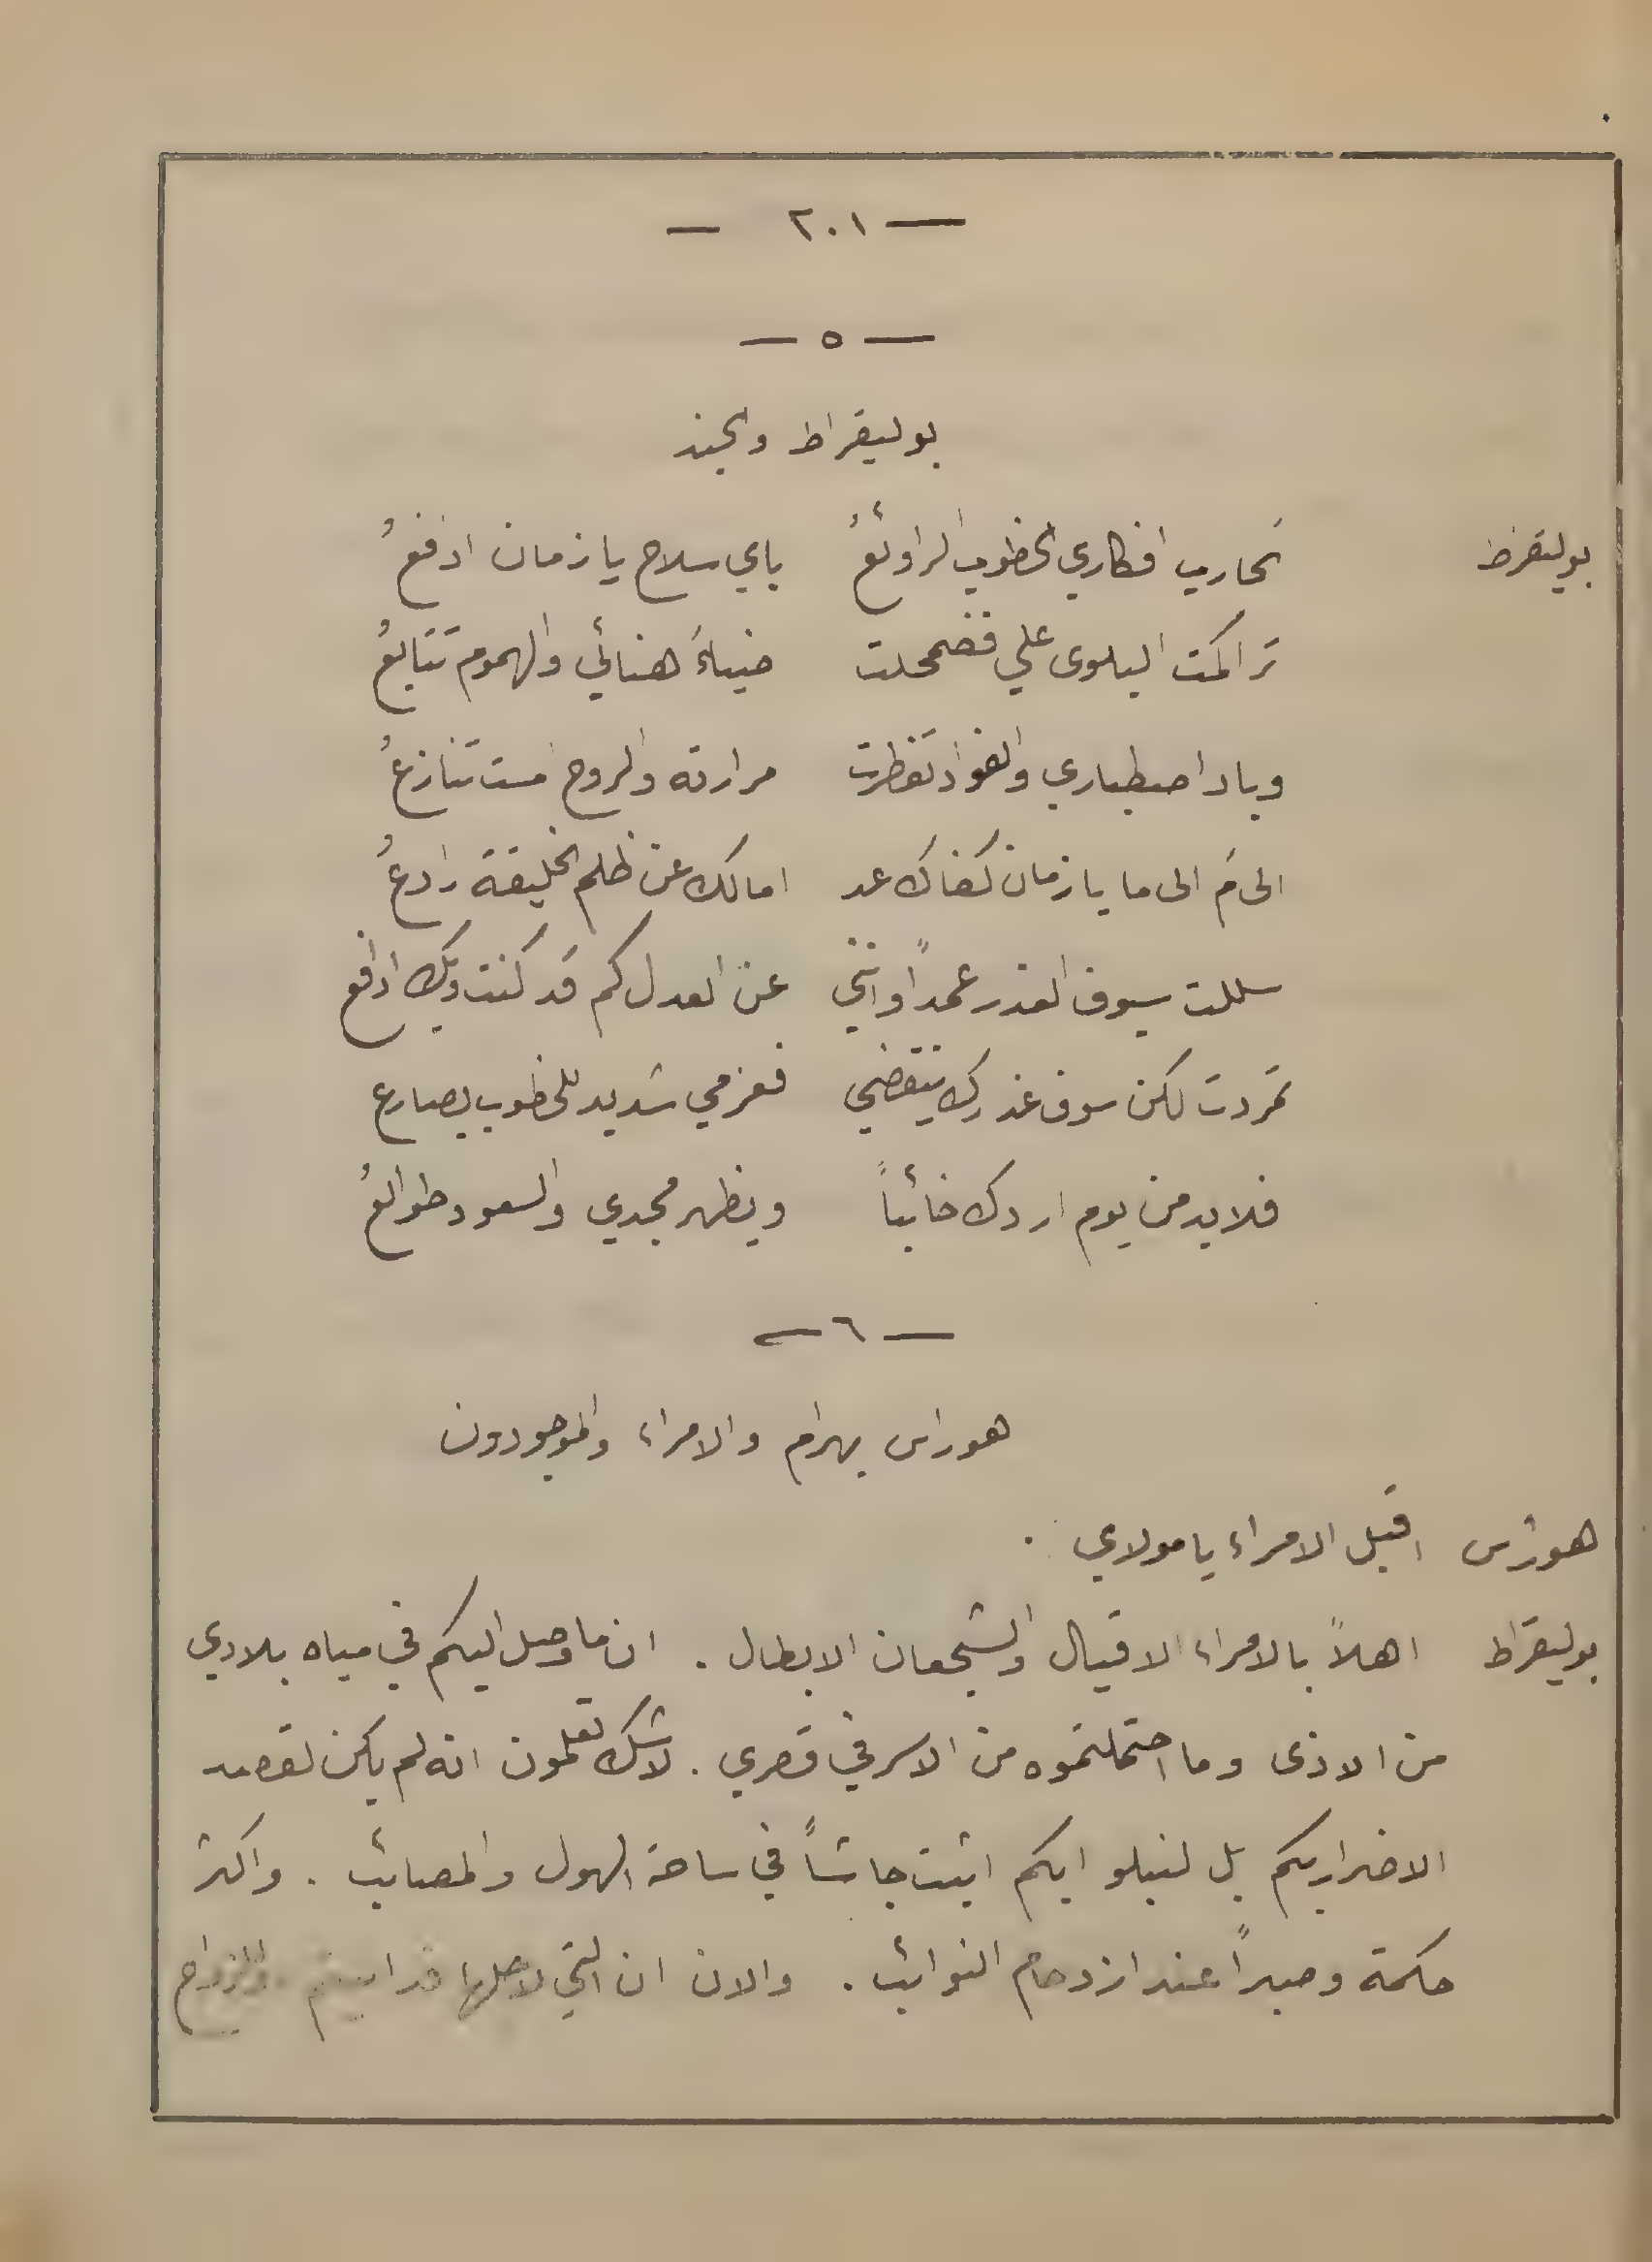 — ٢٠١ —
— ٥ —
بوليقراط والجند
بوليقرط تحارب افكاري الخطوب الروائعُ باي سلاح يا زمان ادفعُ
تراكمت البلوى علي فضمحلت ضياءُ هنائي والهموم تتابعُ
وباد اصطباري والفواد تفطرت مرارته والروح مست تنازعُ
الى مَ الى ما يا زمان كفاك عد امالك عن ظلم الخليقة رادعُ
سللت سيوف الغدر عمداً وانثني عن العدل كم قد كنت ويك ادافع
تمردت لكن سوف غدرك ينقضي فعزمي شديد للخطوب يصارع
فلا بد من يوم اردك خائباً ويظهر مجدي والسعود طوالعُ
— ٦ —
هوراس بهرام والامراء والموجودون
هورس اقبل الامراء يا مولاي .
بوليقراط اهلاً بالامراء الاقيال والشجعان الابطال . ان ما وصل اليكم في مياه بلادي
من الاذى وما احتملتموه من الاسر في قصري . لاشك تعلمون انه لم يكن لقصد
الاضرار بكم بل لنبلو ايكم اثبت جاشاً في ساحة الهول والمصائب . واكثر
حكمة وصبراً عند ازدحام النوائب . والان ان التي لاجلها قد